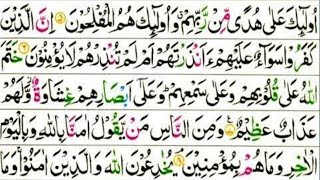 اُولٰٓئِكَ عَلٰى هُدًى مِّنْ رَّبِّهِمْ ۙ وَاُولٰٓئِكَ هُمُ الْمُفْلِحُوْنَ ۝۵ اِنَّ الَّذِيْنَ
كَفَرُوْا سَوَآءٌ عَلَيْهِمْ ءَاَنْذَرْتَهُمْ اَمْ لَمْ تُنْذِرْهُمْ لَا يُؤْمِنُوْنَ ۝۶ خَتَمَ
اللّٰهُ عَلٰى قُلُوْبِهِمْ وَعَلٰى سَمْعِهِمْ ؕ وَعَلٰٓى اَبْصَارِهِمْ غِشَاوَةٌ ؗ وَّلَهُمْ
عَذَابٌ عَظِيْمٌ ۝۷ وَمِنَ النَّاسِ مَنْ يَّقُوْلُ اٰمَنَّا بِاللّٰهِ وَبِالْيَوْمِ
الْاٰخِرِ وَمَا هُمْ بِمُؤْمِنِيْنَ ۝۸ يُخٰدِعُوْنَ اللّٰهَ وَالَّذِيْنَ اٰمَنُوْا ۚ وَمَا